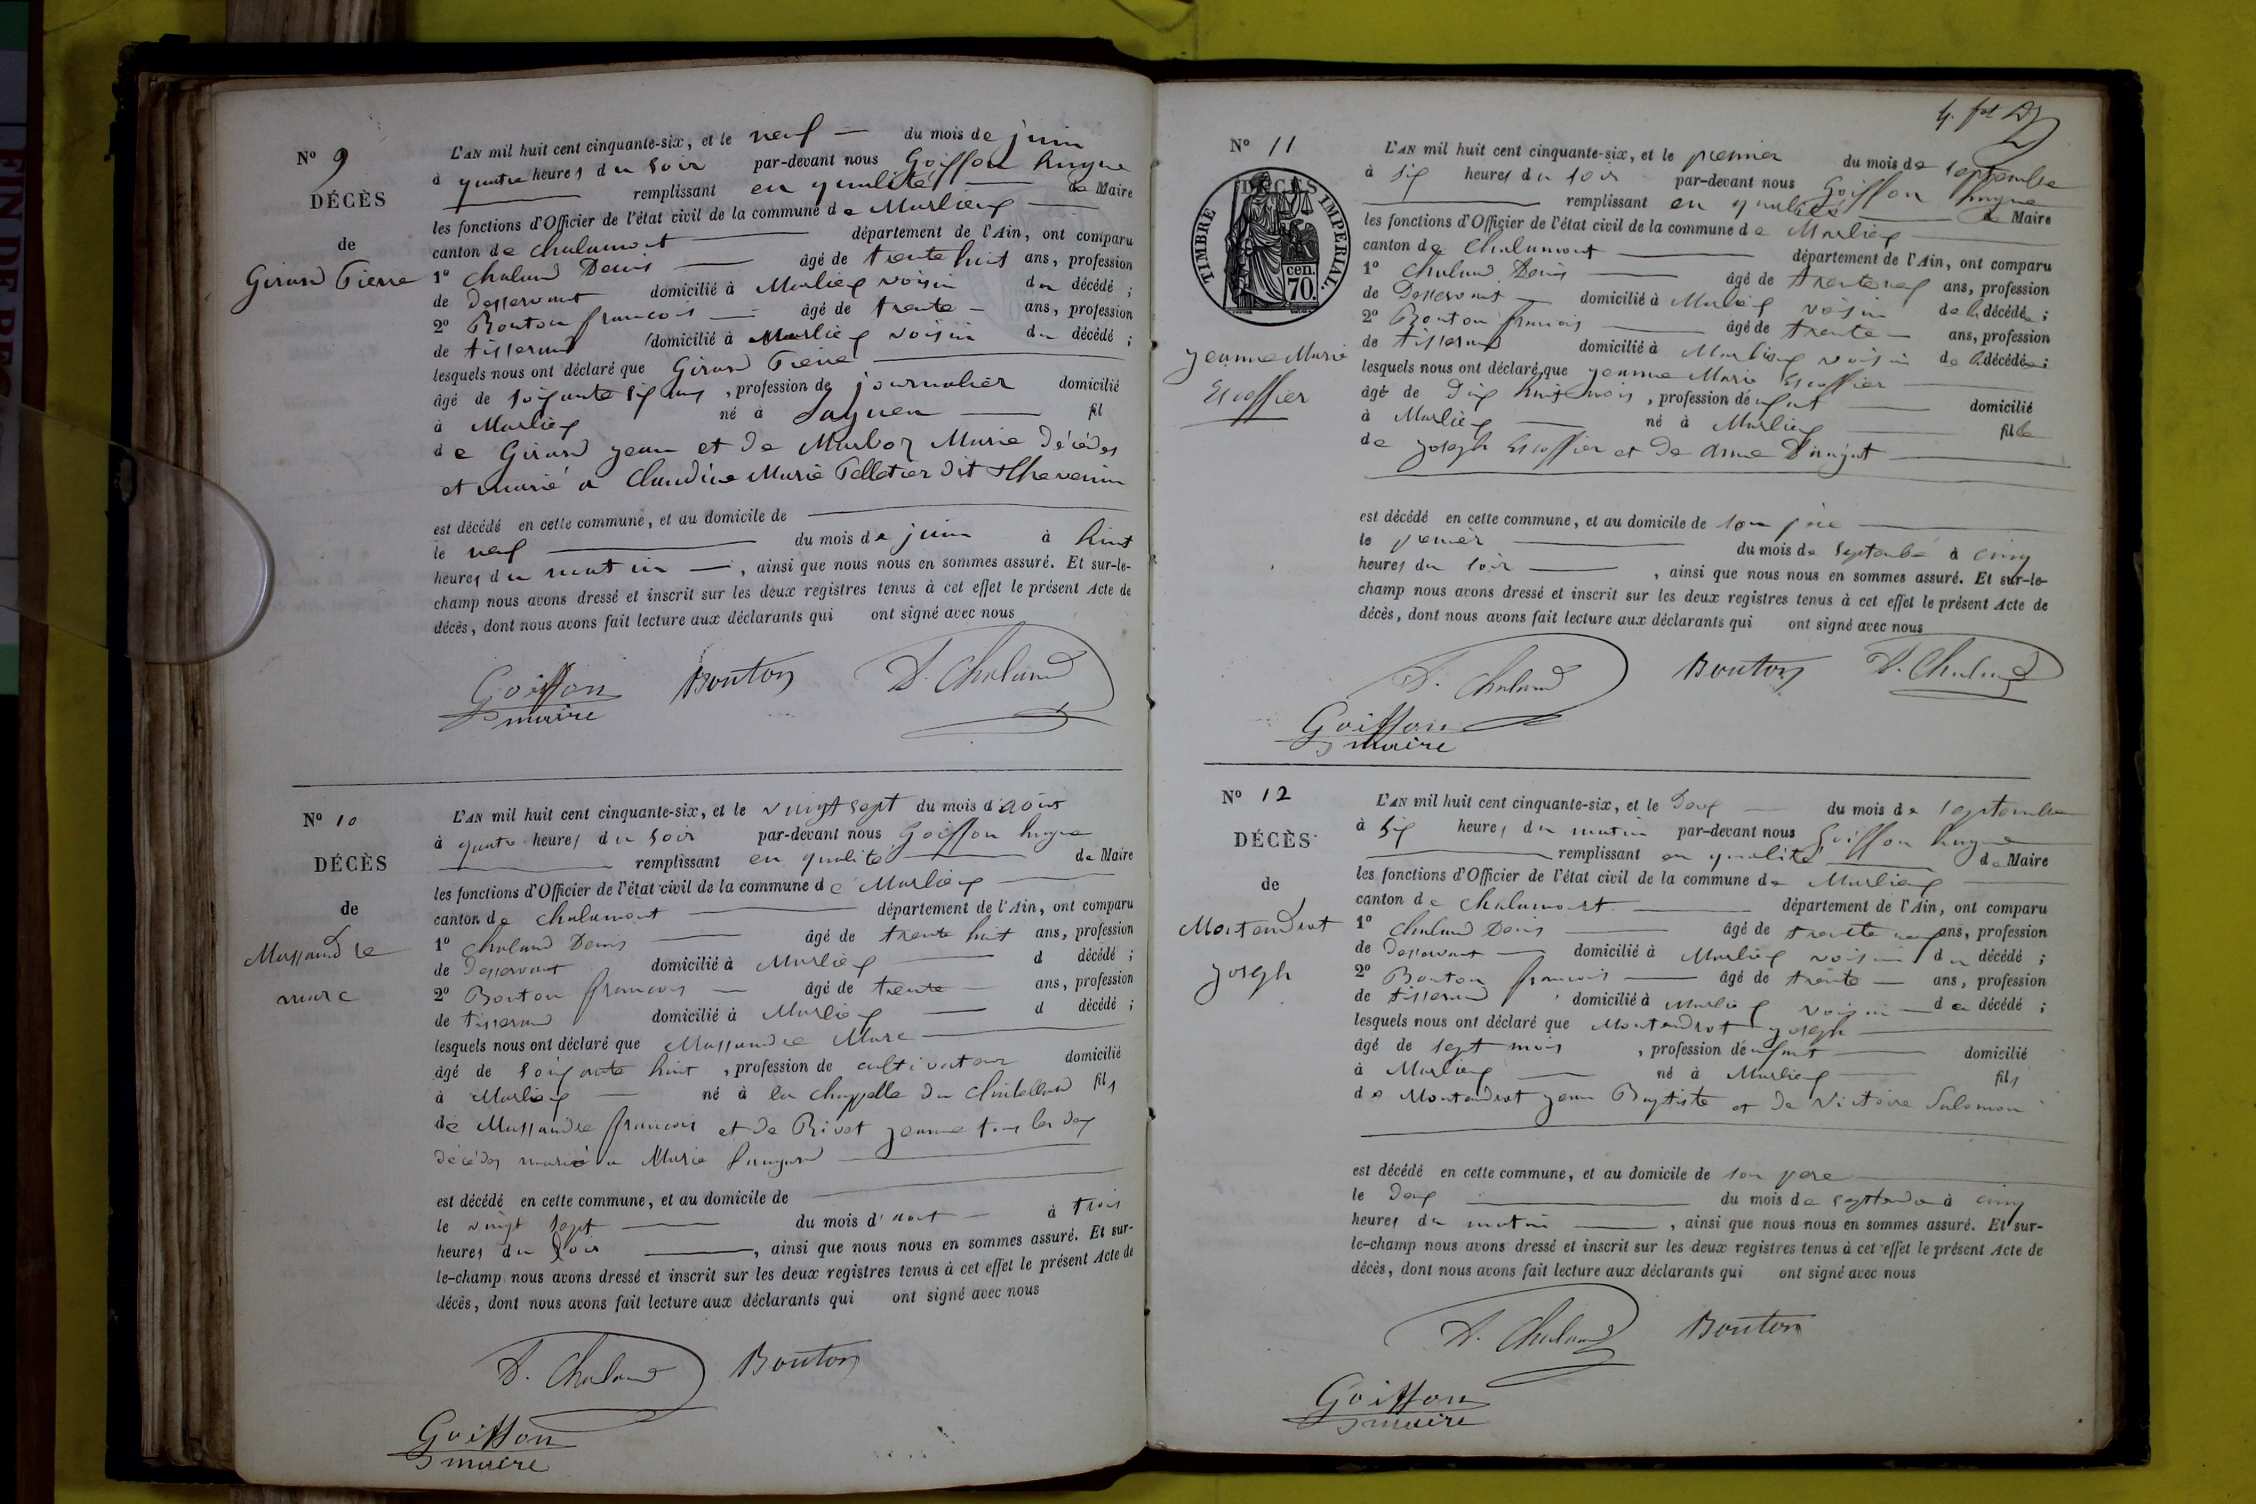 No 9
DÉCÈS
de
Girard Pierre
L'AN mil huit cent cinquante-six, et le neuf du mois de juin
à quatre heures du soir par-devant nous Goiffon hugue
remplissant en qualité de Maire
les fonctions d'Officier de l'état civil de la commune de Marlieux
canton de Chalamont département de l'Ain, ont comparu
1° Chaland Denis âgé de trente huit ans, profession
de desservant domicilié à Marlieux voisin du décédé ;
2° Bouton francois âgé de trente ans, profession
de tisserand domicilié à Marlieux voisin du décédé ;
lesquels nous ont déclaré que Girard Pierre
âgé de soixante six ans, profession de journalier domicilié
à Marlieux né à fil
de Girard jean et de Marie décédés
et marié a Claudine Marie Pelletier dit thevenin
est décédé en cette commune, et au domicile de
le neuf du mois de juin à huit
heures du matin, ainsi que nous nous en sommes assuré. Et sur-le-
champ nous avons dressé et inscrit sur les deux registres tenus à cet effet le présent Acte de
décès, dont nous avons fait lecture aux déclarants qui ont signé avec nous
Goiffon Bouton D. Chaland
maire
No 10
DÉCÈS
de
Massandre
marc
L'AN mil huit cent cinquante-six, et le vingt sept du mois d'août
à quatre heures du soir par-devant nous Goiffon hugue
remplissant en qualité de Maire
les fonctions d'Officier de l'état civil de la commune de Marlieux
canton de Chalamont département de l'Ain, ont comparu
1° Chaland Denis âgé de trente huit ans, profession
de desservant domicilié à Marlieux d décédé ;
2° Bouton francois âgé de trente ans, profession
de tisserand domicilié à Marlieux d décédé ;
lesquels nous ont déclaré que Massandre Marc
âgé de soixante huit, profession de cultivateur domicilié
à Marlieux né à la chappelle du chatelard fils
de Massandre francois et de Rivet jeanne tous les deux
décédés marié a Marie
est décédé en cette commune, et au domicile de
le vingt sept du mois d'aout à trois
heures du soir, ainsi que nous nous en sommes assuré. Et sur-
le-champ nous avons dressé et inscrit sur les deux registres tenus à cet effet le présent Acte de
décès, dont nous avons fait lecture aux déclarants qui ont signé avec nous
D. Chaland Bouton
Goiffon
maire
No 11
TIMBRE IMPERIAL.
DÉCÈS
cen.
70.
jeanne Marie
Escoffier
L'AN mil huit cent cinquante-six, et le premier du mois de septembre
à six heures du soir par-devant nous Goiffon hugue
remplissant en qualité de Maire
les fonctions d'Officier de l'état civil de la commune de Marlieux
canton de Chalamont département de l'Ain, ont comparu
1° Chaland Denis âgé de trente neuf ans, profession
de Desservant domicilié à Marlieux voisin de la décédée ;
2° Bouton francois âgé de trente ans, profession
de tisserand domicilié à Marlieux voisin de la décédée ;
lesquels nous ont déclaré que jeanne Marie Escoffier
âgé de dix huit mois, profession d'enfant domicilié
à Marlieux né à Marlieux fille
de joseph Escoffier et de anne
est décédé en cette commune, et au domicile de son père
le premier du mois de septembre à cinq
heures du soir, ainsi que nous nous en sommes assuré. Et sur-le-
champ nous avons dressé et inscrit sur les deux registres tenus à cet effet le présent Acte de
décès, dont nous avons fait lecture aux déclarants qui ont signé avec nous
D. Chaland Bouton D. Chaland
Goiffon
maire
No 12
DÉCÈS
de
Montendrot
joseph
L'AN mil huit cent cinquante-six, et le deux du mois de septembre
à six heures du matin par-devant nous Goiffon hugue
remplissant en qualité de Maire
les fonctions d'Officier de l'état civil de la commune de Marlieux
canton de Chalamont département de l'Ain, ont comparu
1° Chaland Denis âgé de trente neuf ans, profession
de desservant domicilié à Marlieux voisin du décédé ;
2° Bouton francois âgé de trente ans, profession
de tisserand domicilié à Marlieux voisin du décédé ;
lesquels nous ont déclaré que Montendrot joseph
âgé de sept mois, profession d'enfant domicilié
à Marlieux né à Marlieux fils
de Montendrot jean Baptiste et de Victoire Salomon
est décédé en cette commune, et au domicile de son pere
le deux du mois de septembre à cinq
heures du matin, ainsi que nous nous en sommes assuré. Et sur-
le-champ nous avons dressé et inscrit sur les deux registres tenus à cet effet le présent Acte de
décès, dont nous avons fait lecture aux déclarants qui ont signé avec nous
D. Chaland Bouton
Goiffon
maire